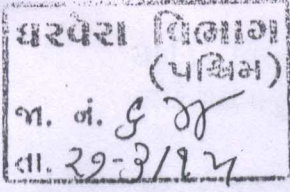 ઘરવેરા વિભાગ
(પશ્ચિમ)
જા. નં. ૬
તા. ૨૭-૩/૧૫